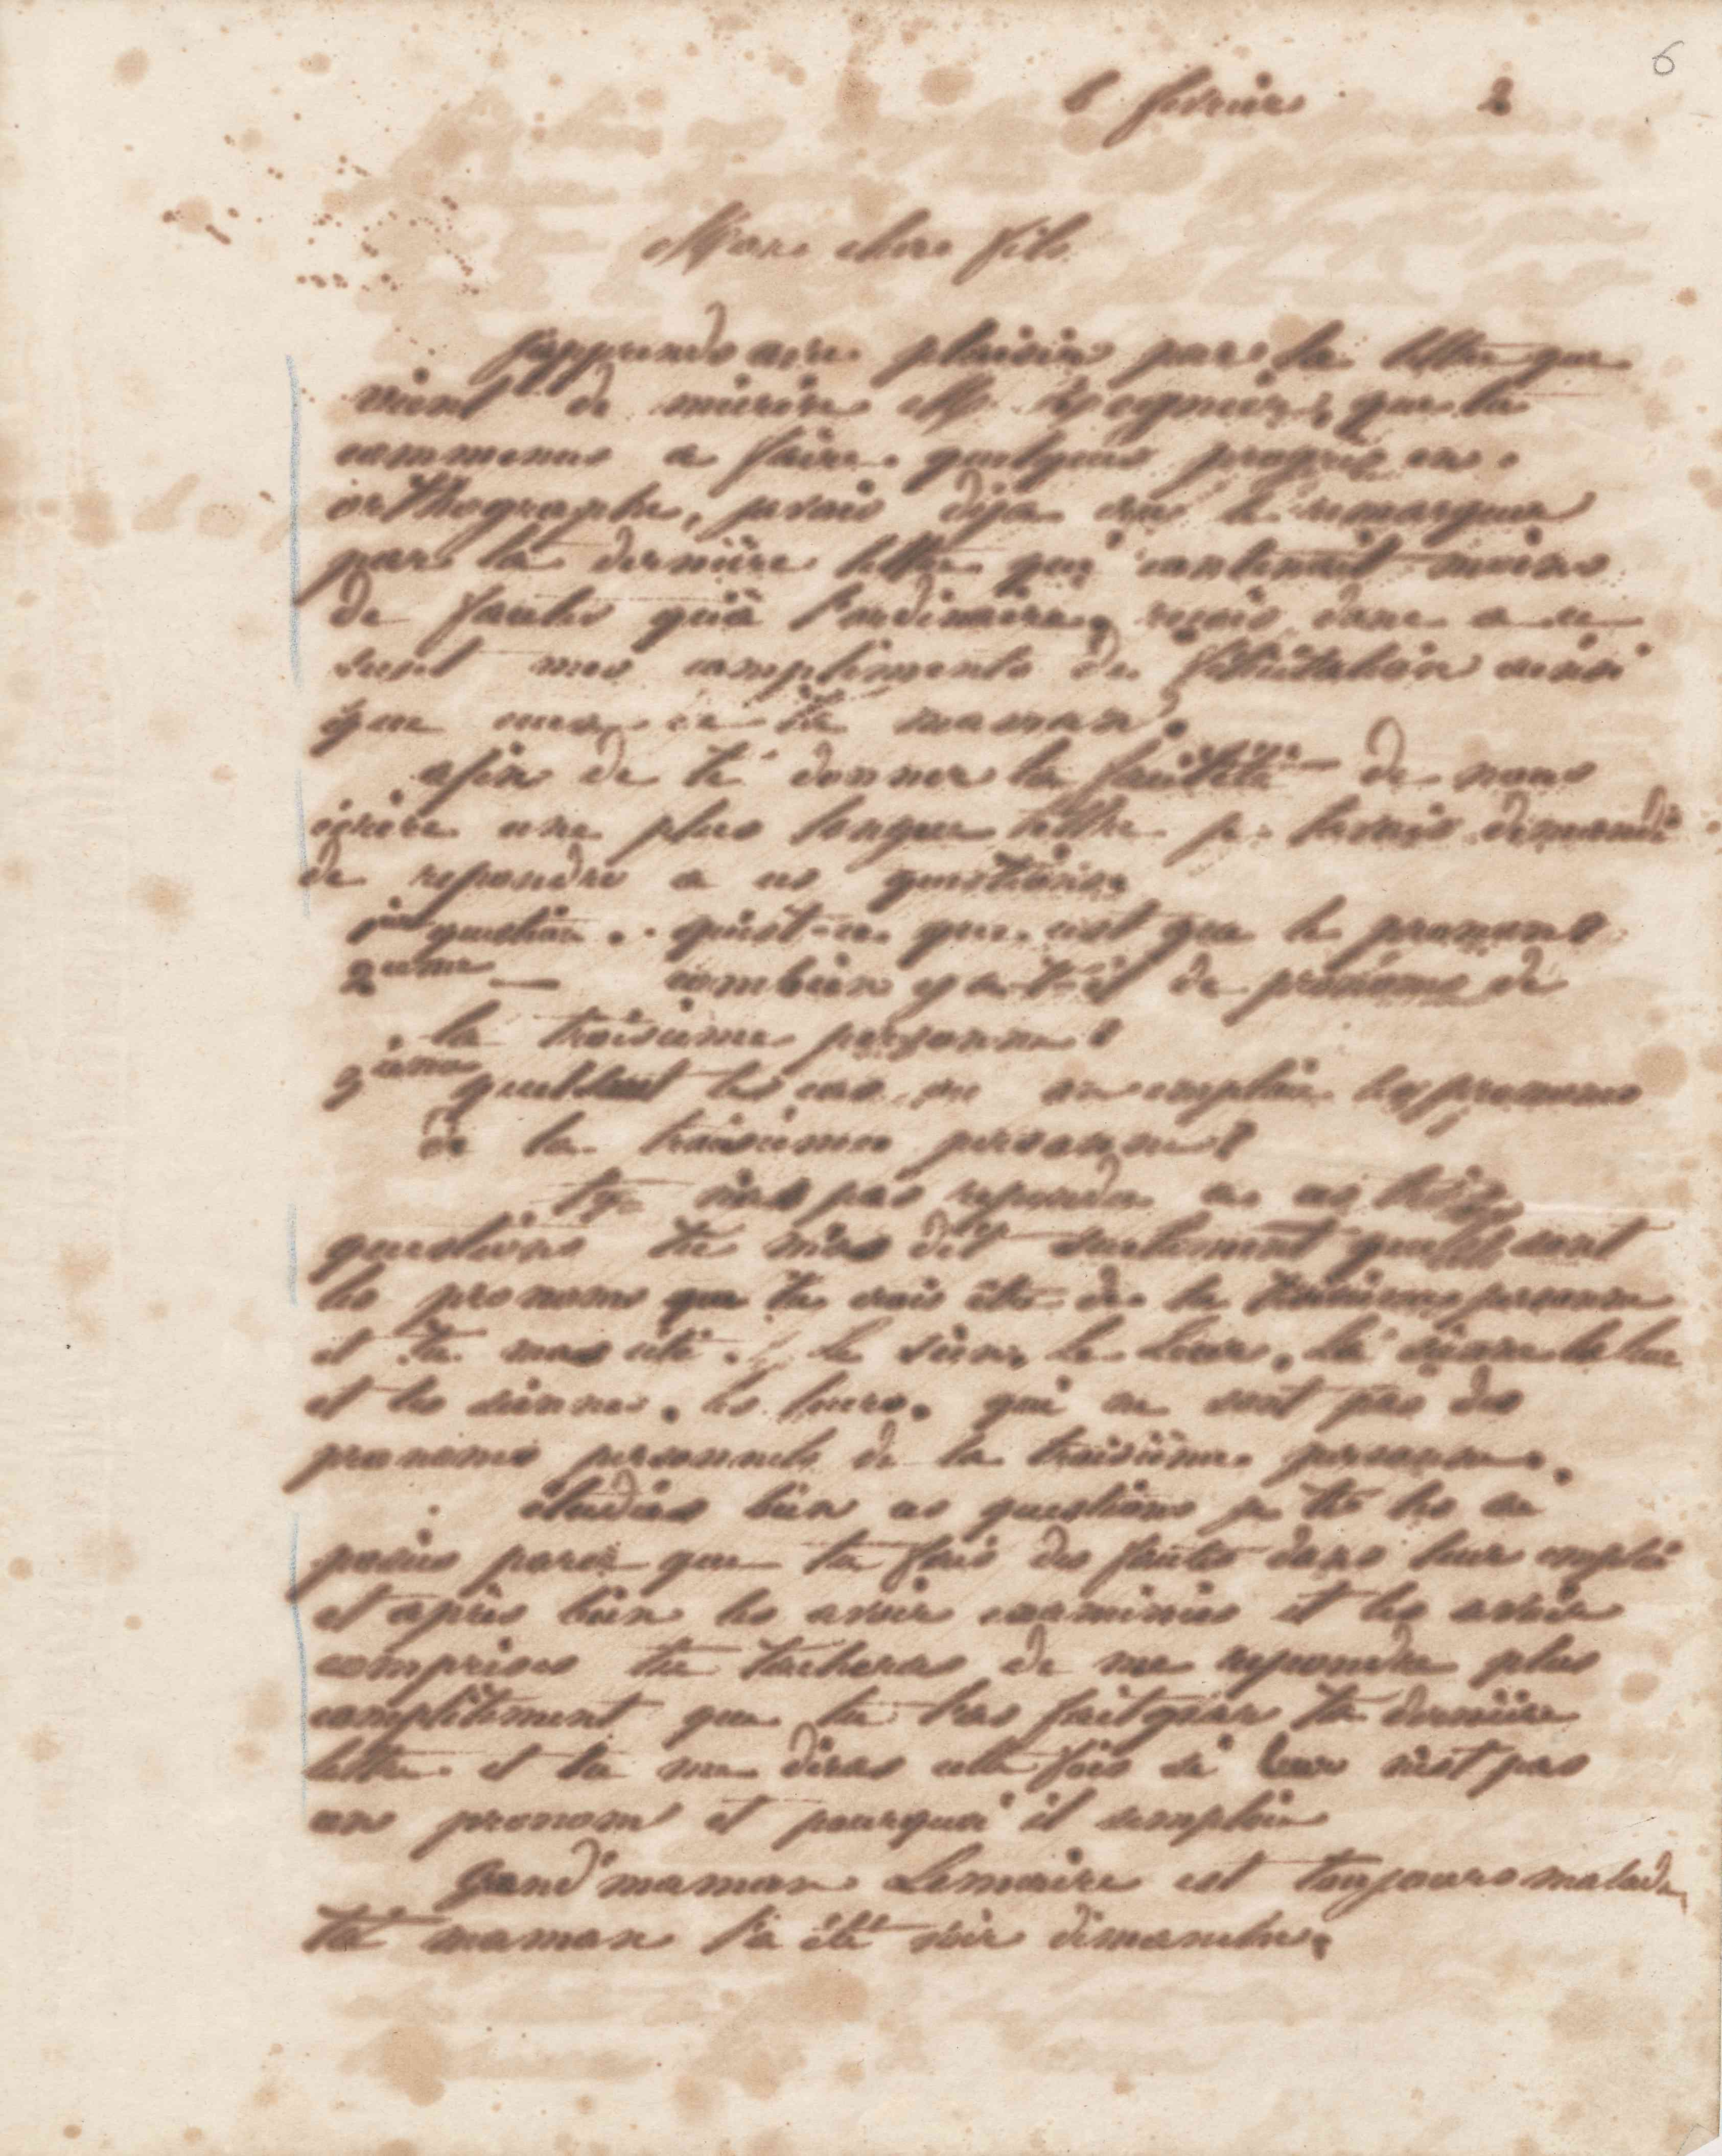 6
6 février 2
Mon cher fils
J'apprends avec plaisir par la lettre que
vient de m'écrire M. que tu
commence a faire quelques progrès en
orthographe, j'avais déja cru le remarquer
par ta dernière lettre qui contenait moins
de fautes qu'à l'ordinaire, reçois donc a ce
sujet mes compliments de félicitation ainsi
que ceux de ta maman.
afin de te donner la facilité de nous
écrire une plus longue lettre je t'avais demandé
de repondre a ces questions.
1ère question. qu'est-ce que c'est que le pronom?
2eme — combien y a-t-il de pronoms de
la troisieme personne?
3ieme quel sont les cas ou on emploie les pronoms
de la troisieme personne?
tu n'as pas repondu a ces trois
questions tu m'as dit seulement quels sont
les pronoms que tu crois être de la troisieme personne
et tu mas cité. le sien, le leur, la sienne la leur
et les siennes, les leurs, qui ne sont pas des
pronoms personnels de la troisième personne.
étudies bien ces questions je te les ai
posées parce que tu fais des fautes dans leur emploi
et après bien les avoir examinées et les avoir
comprises tu tacheras de me repondre plus
complètement que tu l'as fait par ta dernière
lettre et tu me diras cette fois si leur n'est pas
un pronom et pourquoi il s'emploie
Grand'maman Lemaire est toujours malade,
ta maman l'a été voir dimanche.